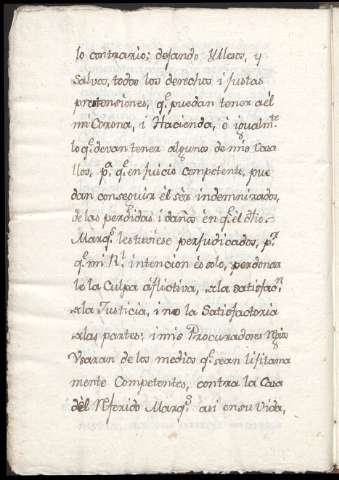 lo contrario; dejando Yllesos, y
Salvos, todos los derechos i justas
pretensiones, q.e puedan tener a èl
mi Corona, i Hacienda, è igualm.te
lo q.e devan tener algunos de mis Vasa
llos, p.a q.e en juicio competente, pue
dan conseguir el sèr indemnizados,
de las perdidas i daños en q.e el dho.
Marq.s les tuviese perjudicados, p.s
q.e mi R.l intencion es solo, perdonar
le la Culpa aflictiva, a la satisfac.n
a la Justicia, i no la Satisfactoria
a las partes; i mis Procuradores
Usaran de los medios q.e sean lisitama
mente Competentes, contra la Casa
dèl Referido Marq.s asi en su Vida,